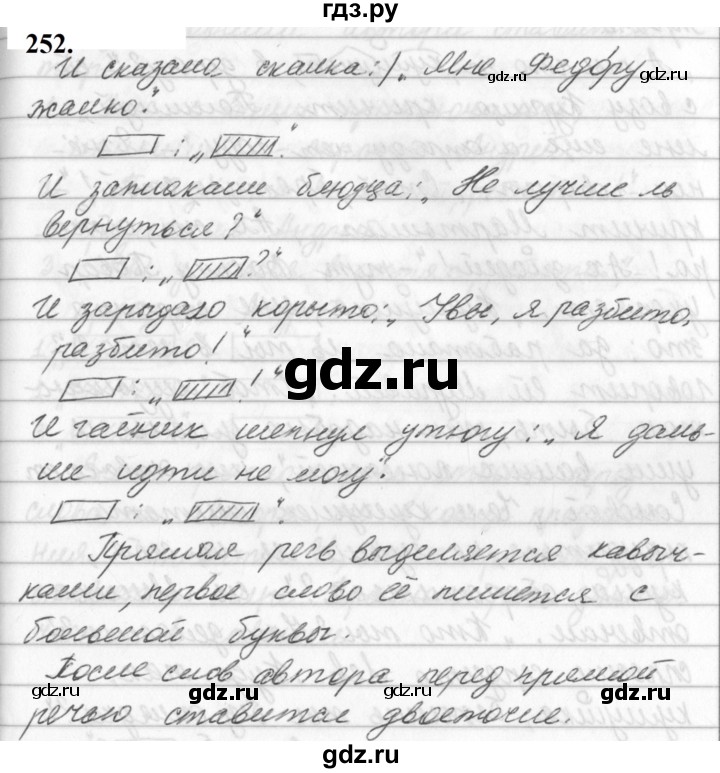 гдз.ру
252.
И сказала скалка: „Мне Федору
жалко“.
: „ “.
И заплакали блюдца: „Не лучше ль
вернуться?“
: „ ?“
И зарыдало корыто: „Увы, я разбито,
разбито!“
: „ !“
gdz.ru
И чайник шепнул утюгу: „Я даль-
ше идти не могу“.
: „ “.
Прямая речь выделяется кавыч-
ками, первое слово её пишется с
большой буквы.
После слов автора перед прямой
gdz.ru gdz.ru gdz.ru
речью ставится двоеточие.
gdz.ru